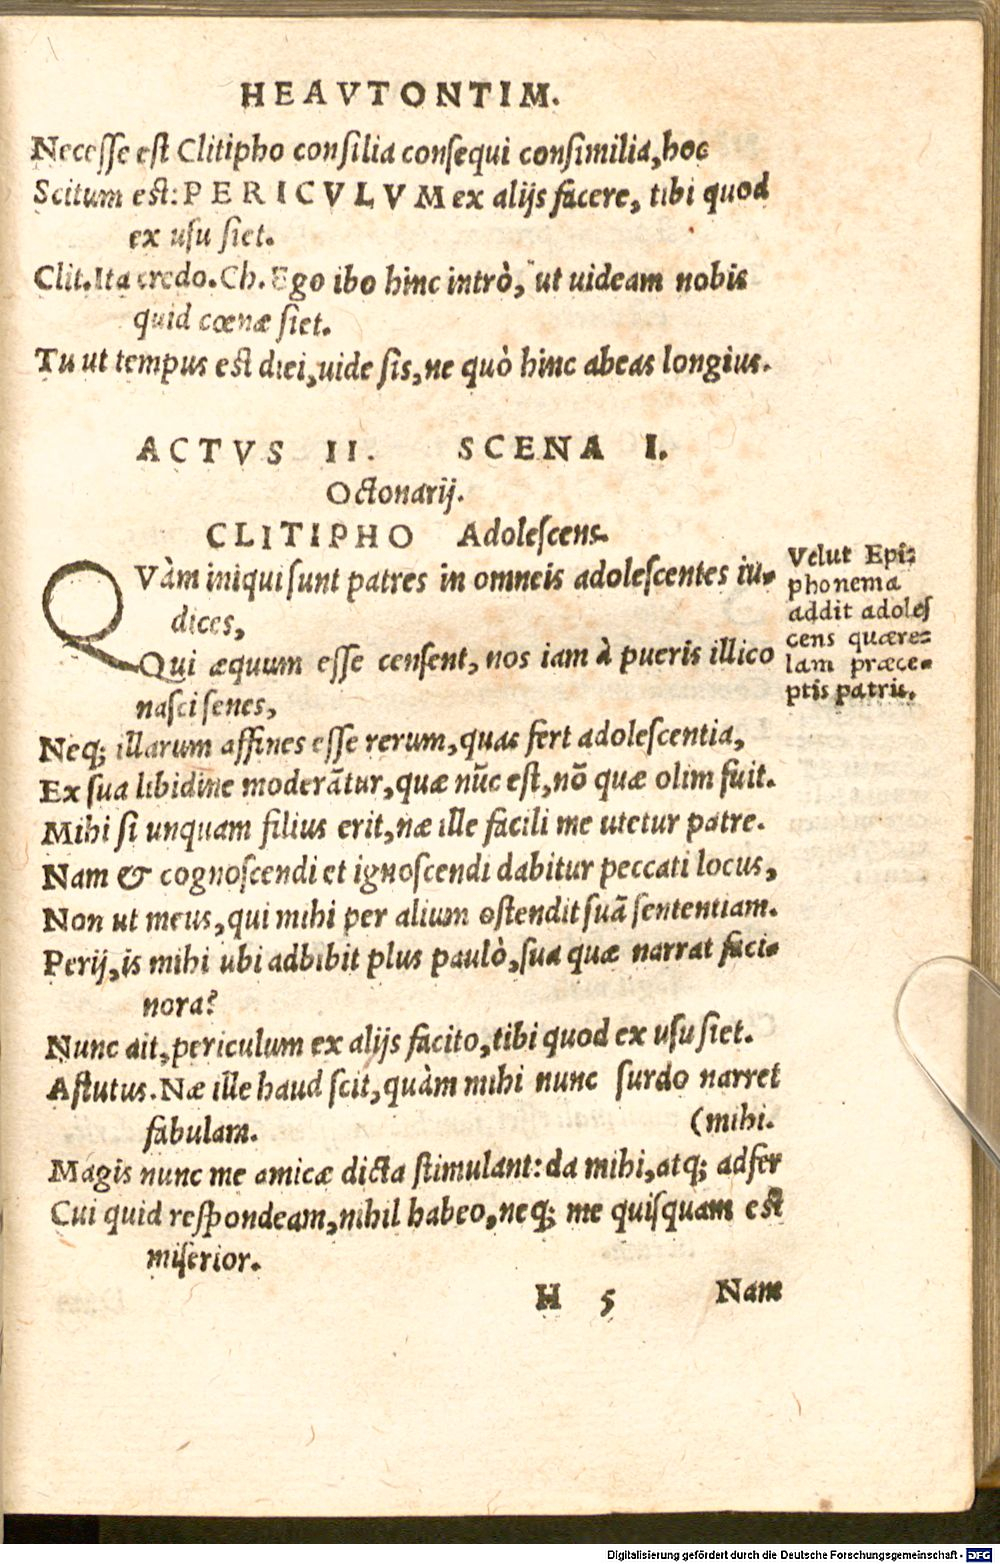 HEAVTONTIM.
Necesse est Clitipho consilia consequi consimilia, hoc
Scitum est: PERICVLVM ex alijs facere, tibi quod
ex usu siet.
Clit. Ita credo. Ch. Ego ibo hinc intrò, ut uideam nobis
quid cœnæ siet.
Tu ut tempus est diei, uide sis, ne quò hinc abeas longius.
ACTVS II. SCENA I.
Octonarij.
CLITIPHO Adolescens.
QVàm iniqui sunt patres in omneis adolescentes iu-
dices,
Qui æquum esse censent, nos iam à pueris illico
nasci senes,
Neq; illarum affines esse rerum, quas fert adolescentia,
Ex sua libidine moderãtur, quæ nũc est, nõ quæ olim fuit.
Mihi si unquam filius erit, næ ille facili me utetur patre.
Nam & cognoscendi et ignoscendi dabitur peccati locus,
Non ut meus, qui mihi per alium ostendit suã sententiam.
Perij, is mihi ubi adbibit plus paulò, sua quæ narrat faci-
nora?
Nunc ait, periculum ex alijs facito, tibi quod ex usu siet.
Astutus. Næ ille haud scit, quàm mihi nunc surdo narret
fabulam. (mihi.
Magis nunc me amicæ dicta stimulant: da mihi, atq; adfer
Cui quid respondeam, nihil habeo, neq; me quisquam est
miserior.
H 5 Nam
Velut Epi-
phonema
addit adoles
cens quære-
lam præce-
ptis patris.
Digitalisierung gefördert durch die Deutsche Forschungsgemeinschaft - DFG